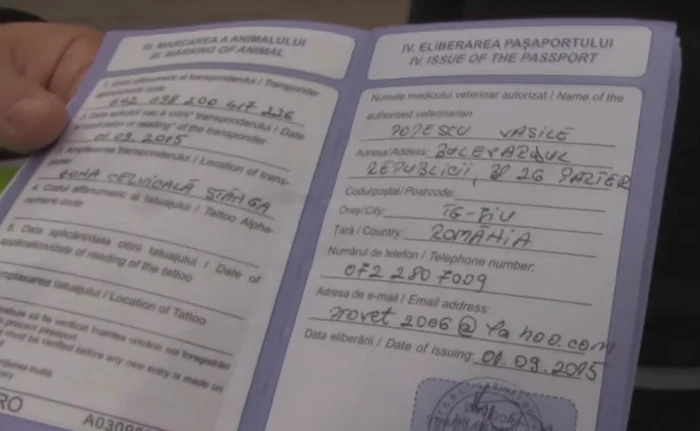 III. MARCAREA A ANIMALULUI
III. MARKING OF ANIMAL
1. Codul alfanumeric al transponderului / Transponder
alphanumeric code
642 098 200 417 226
2. Data aplicării sau a citirii* transponderului / Date
of application or reading* of the transponder
01.09.2015
Amplasarea transponderului / Location of trans-
ponder
ZONA CERVICALĂ STÂNGA
4. Codul alfanumeric al tatuajului / Tattoo Alpha-
numeric code
5. Data aplicării/data citirii tatuajului / Date of
application/date of reading of the tattoo
Amplasarea tatuajului / Location of Tattoo
trebuie să fie verificat înaintea oricărei noi înregistrări
present passport
must be verified before any new entry is made on
RO
A0309
IV. ELIBERAREA PAȘAPORTULUI
IV. ISSUE OF THE PASSPORT
Numele medicului veterinar autorizat / Name of the
authorized veterinarian
POPESCU VASILE
Adresa/Address: BULEVARDUL
REPUBLICII, 26 PARTER
Codul poștal / Post code:
Oraș/City: TG-JIU
Țară / Country: ROMÂNIA
Numărul de telefon / Telephone number:
072 280 7009
Adresa de e-mail / Email address:
provet 2006@yahoo.com
Data eliberării / Date of issuing: 01.09.2015